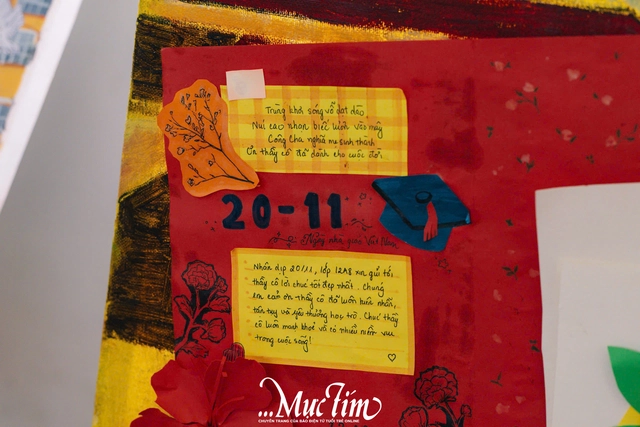 Trùng khơi sóng vỗ dạt dào
Núi cao nhọn biếc luồn vào mây
Công Cha nghĩa mẹ sinh thành
Ơn thầy cô đã dành cho cuộc đời
20-11
Ngày nhà giáo Việt Nam
Nhân dịp 20/11, lớp 12A8 xin gửi tới
thầy cô lời chúc tốt đẹp nhất. Chúng
em cảm ơn thầy cô đã luôn kiên nhẫn,
tận tụy và yêu thương học trò. Chúc thầy
cô luôn mạnh khoẻ và có nhiều niềm vui
trong cuộc sống!
...Mực Tím
CHUYÊN TRANG CỦA BÁO ĐIỆN TỬ TUỔI TRẺ ONLINE